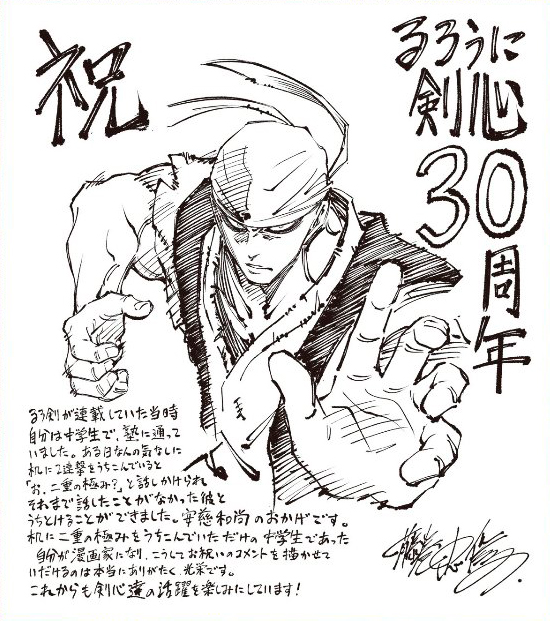 祝
るろうに
剣心
30
周年
るろ剣が連載していた当時
自分は中学生で、塾に通って
いました。ある日なんの気なしに
机に2連撃をうちこんでいると
「お、二重の極み?」と話しかけられ
それまで話したことがなかった彼と
うちとけることができました。安慈和尚のおかげです。
机に二重の極みをうちこんでいただけの中学生であった
自分が漫画家になり、こうしてお祝いのコメントを描かせて
いただけるのは本当にありがたく、光栄です。
これからも剣心達の活躍を楽しみにしています!